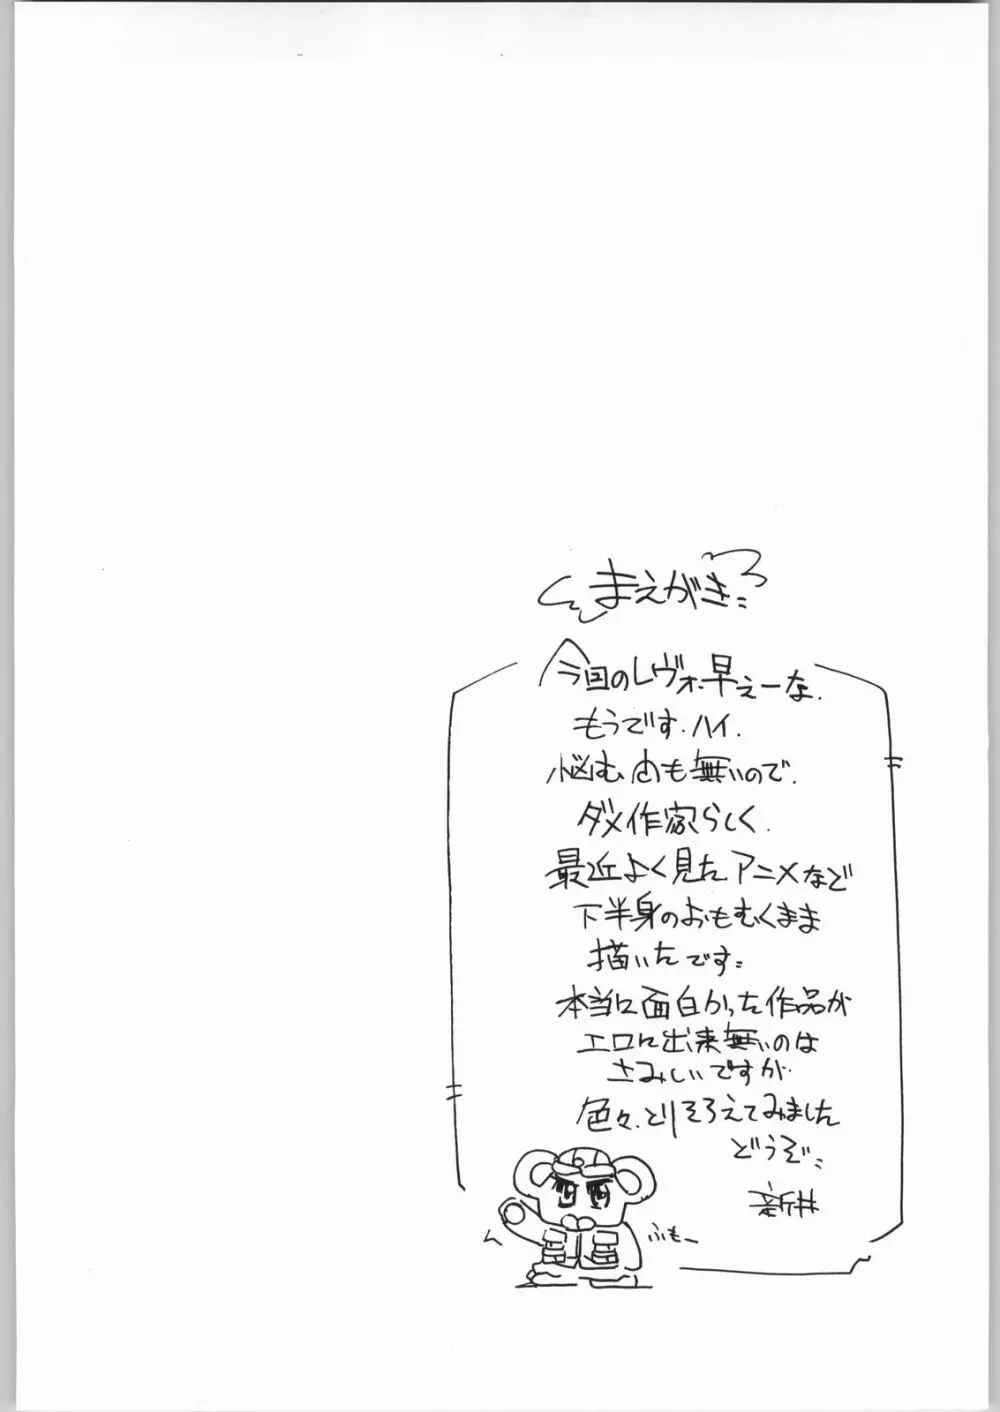 まえがき
今回のレヴォ、早えーな.
もうです.ハイ.
悩む間も無いので.
ダメ作家らしく.
最近よく見たアニメなど
下半身のおもむくまま
描いたです
本当に面白かった作品が
エロに出来無いのは
さみしいですが.
色々.とりそろえてみました
どうぞ
新井
ふもー